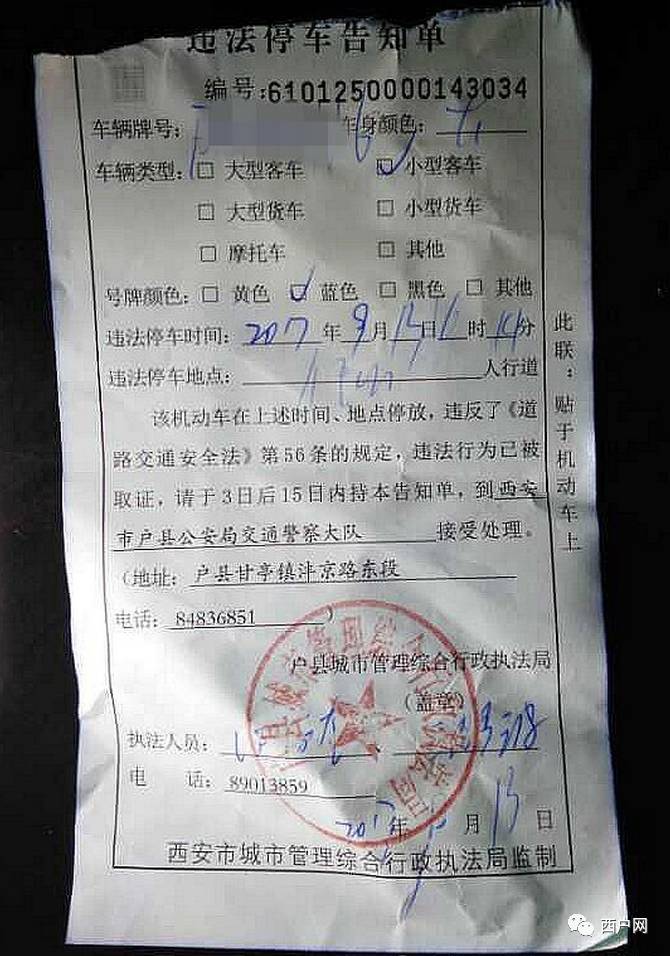 违法停车告知单
编号:6101250000143034
车辆牌号: 车身颜色:
车辆类型: □ 大型客车 □ 小型客车
□ 大型货车 □ 小型货车
□ 摩托车 □ 其他
号牌颜色: □ 黄色 □ 蓝色 □ 黑色 □ 其他
违法停车时间: 2017 年 9 月 13 日 时 分
违法停车地点: 人行道
该机动车在上述时间、地点停放，违反了《道
路交通安全法》第56条的规定，违法行为已被
取证，请于3日后15日内持本告知单，到西安
市户县公安局交通警察大队 接受处理。
(地址: 户县甘亭镇沣京路东段
电话: 84836851 )
户县城市管理综合行政执法局
(盖章)
执法人员:
电 话: 89013859
2017 年 月 13 日
西安市城市管理综合行政执法局监制
此联：贴于机动车上
西户网